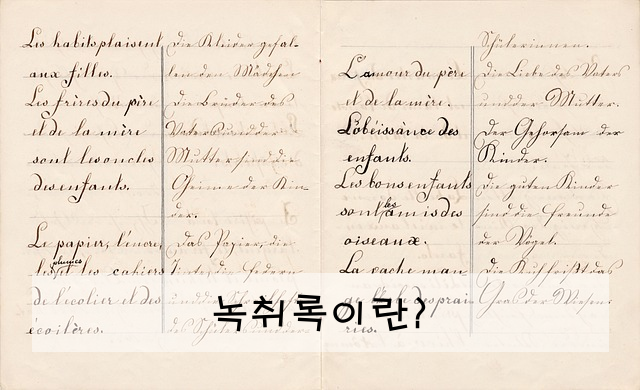 Les habits plaisent
aux filles.
Les frères du père
et de la mère
sont les oncles
des enfants.
Le papier, l'encre,
plumes
les et les cahiers
de l'écolier et des
écolières.
Die Kleider gefal-
len den Mädchen
Die Brüder des
Vaters und der
Mutter sind die
Oheime der Kin-
der.
Das Papier, die
Tinte, die Federn
und die
des Schülers und der
L'amour du père
et de la mère.
L'obéissance des
enfants.
Les bons enfants
les
sont amis des
oiseaux.
La vache man-
des prai-
ries.
Schülerinnen.
Die Liebe des Vaters
und der Mutter.
Der Gehorsam der
Kinder.
Die guten Kinder
sind die Freunde
der Vögel.
Die Kuh frißt das
Gras der Wiesen.
녹취록이란?